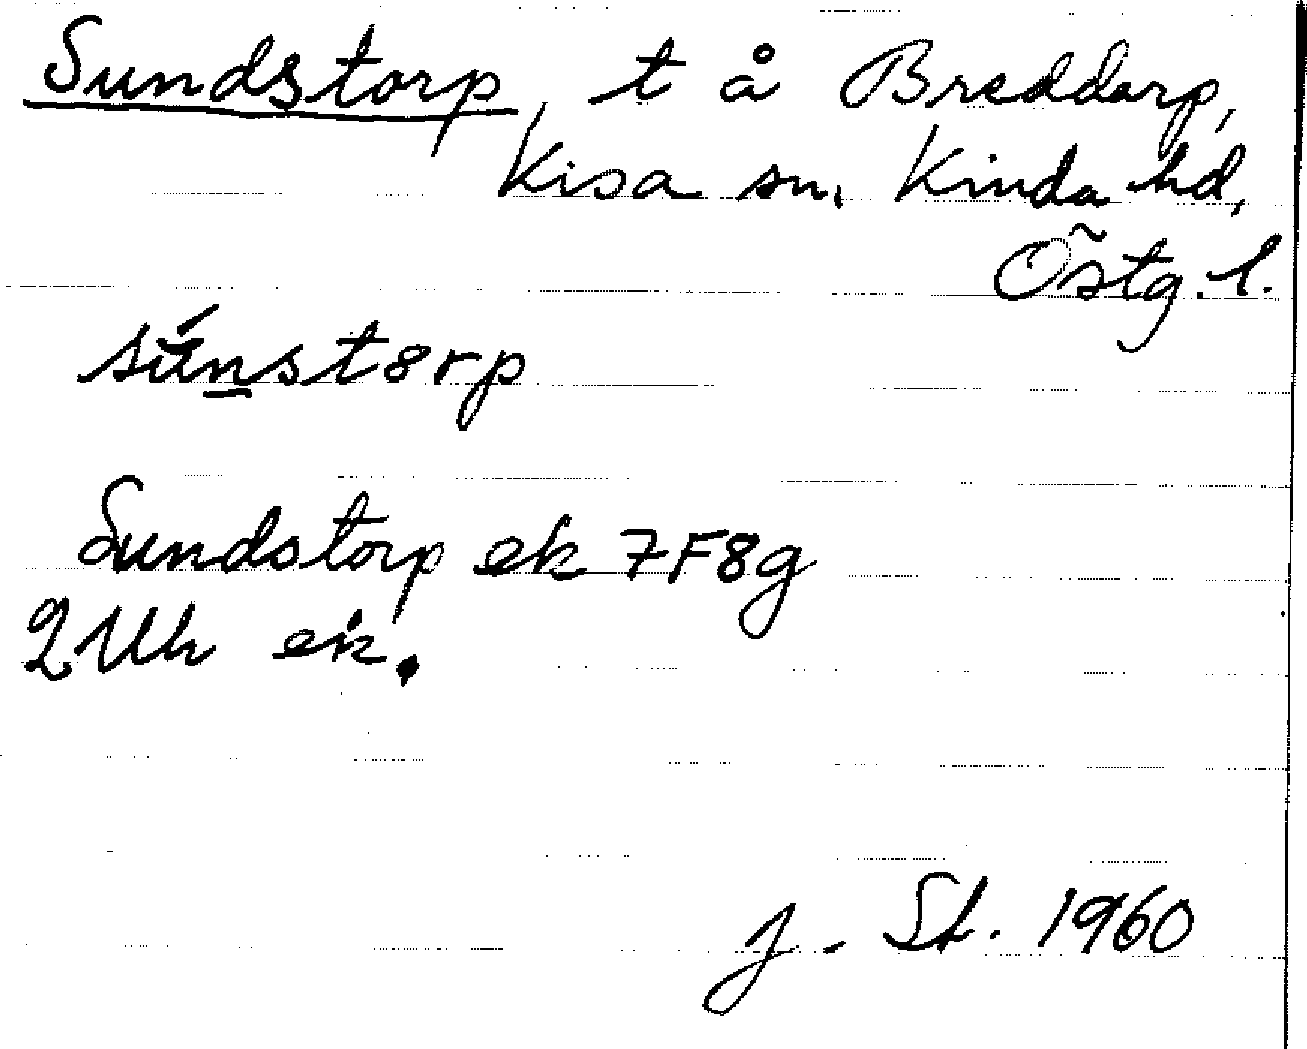 Sundstorp, t å Breddarp,
Kisa sn, Kinda hd,
Östg. l.
súnstorp
Sundstorp ek 7F8g
2 Uh ek.
J. St. 1960